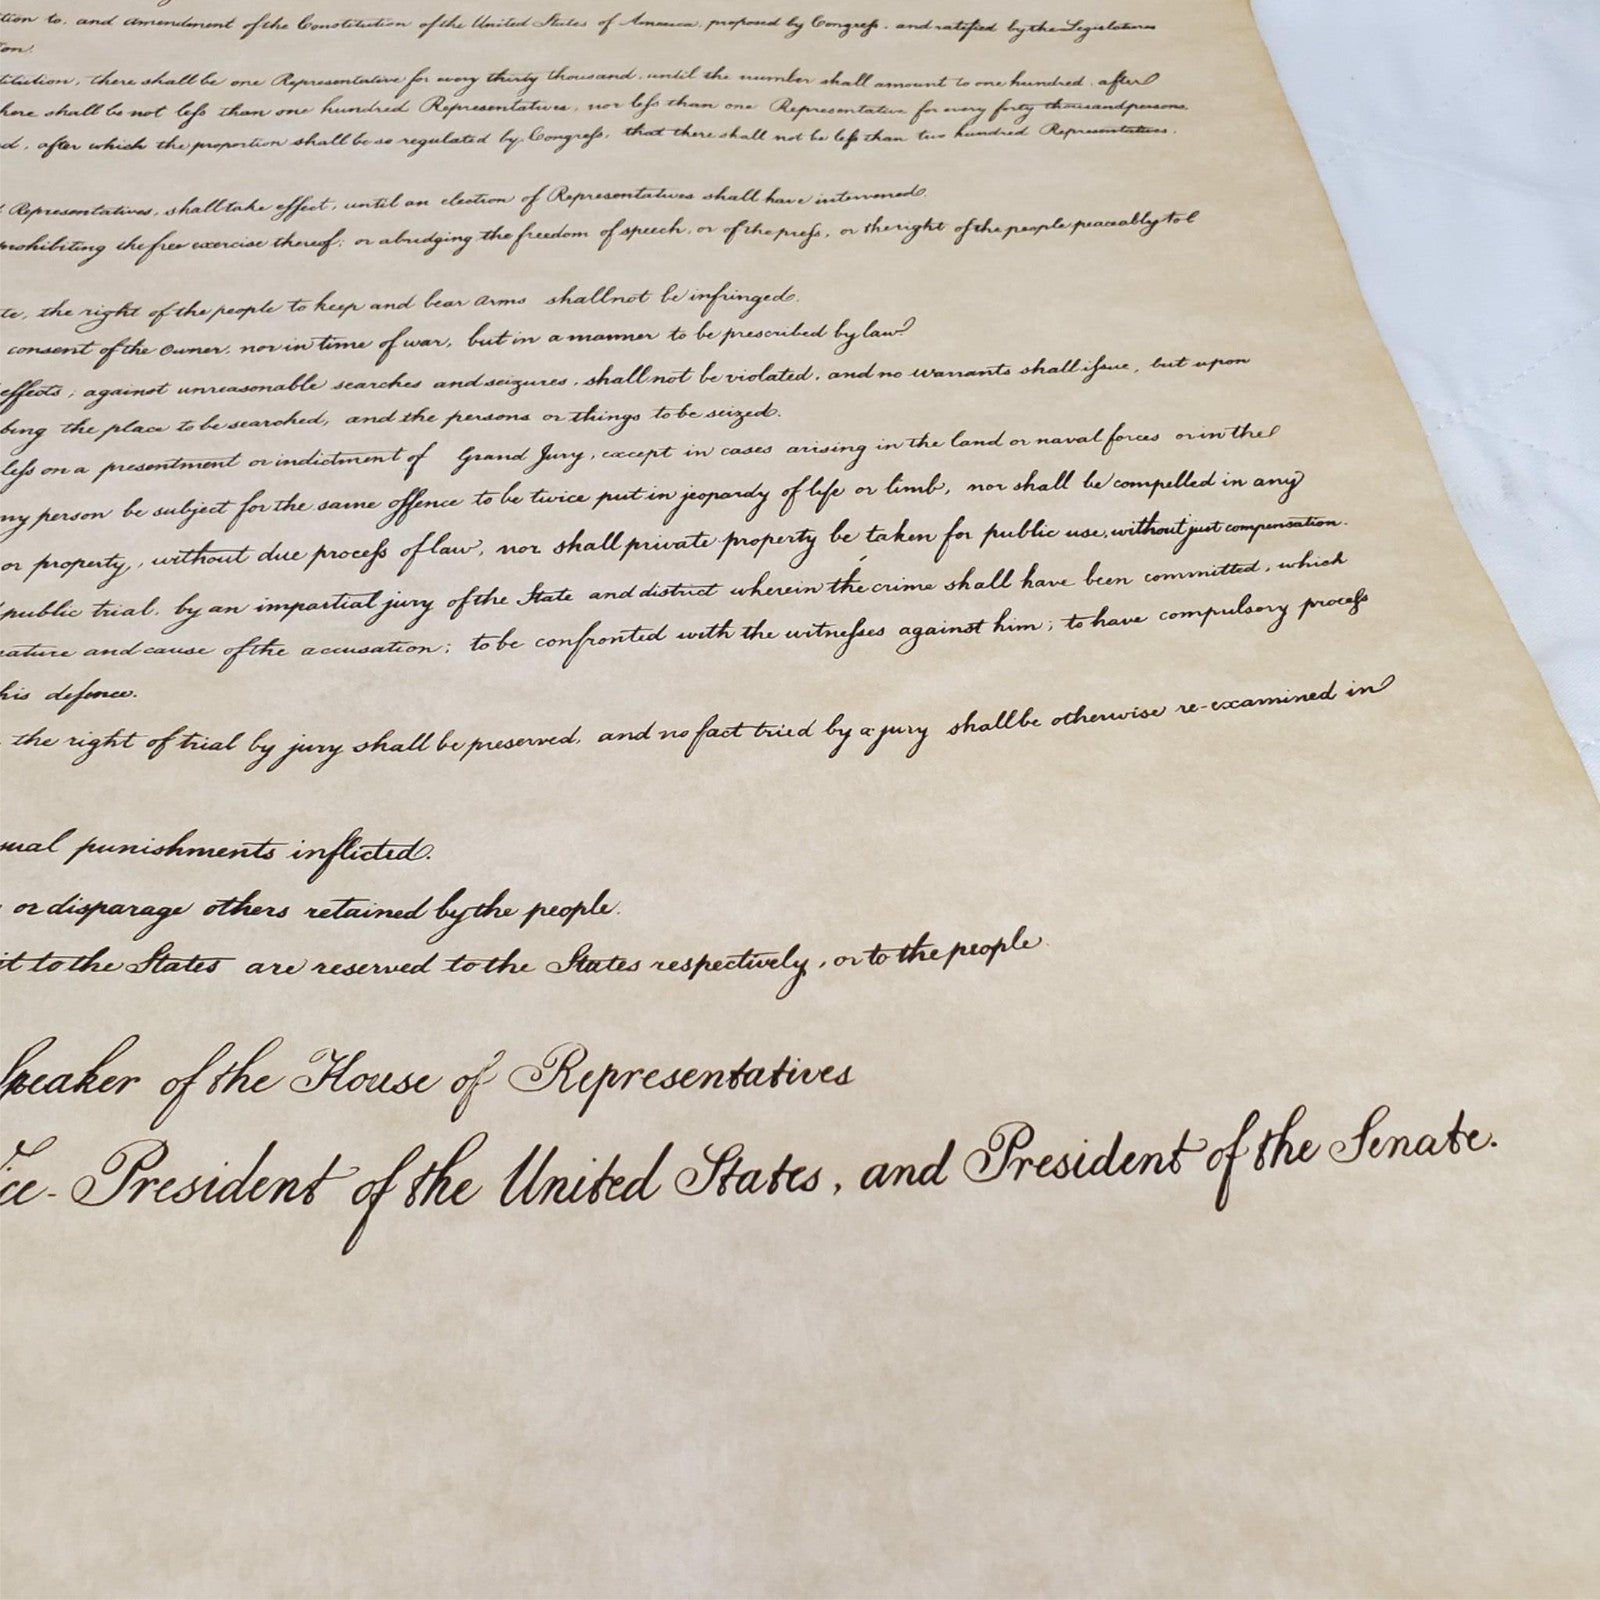 tion to, and amendment of the Constitution of the United States of America, proposed by Congress, and ratified by the Legislatures
ion.
titution, there shall be one Representative for every thirty thousand, until the number shall amount to one hundred, after
here shall be not less than one hundred Representatives, nor less than one Representative for every forty thousand persons,
d, after which the proportion shall be so regulated by Congress, that there shall not be less than two hundred Representatives,
Representatives, shall take effect, until an election of Representatives shall have intervened.
prohibiting the free exercise thereof; or abridging the freedom of speech, or of the press, or the right of the people peaceably to
te, the right of the people to keep and bear Arms shall not be infringed.
consent of the Owner, nor in time of war, but in a manner to be prescribed by law
effects, against unreasonable searches and seizures, shall not be violated, and no warrants shall issue, but upon
bing the place to be searched, and the persons or things to be seized.
less on a presentment or indictment of Grand Jury, except in cases arising in the land or naval forces or in the
ny person be subject for the same offence to be twice put in jeopardy of life or limb, nor shall be compelled in any
or property, without due process of law, nor shall private property be taken for public use, without just compensation.
public trial, by an impartial jury of the State and district wherein the crime shall have been committed, which
nature and cause of the accusation; to be confronted with the witnesses against him; to have compulsory process
his defence.
the right of trial by jury shall be preserved, and no fact tried by a jury shall be otherwise re-examined in
sual punishments inflicted.
or disparage others retained by the people.
it to the States are reserved to the States respectively, or to the people
Speaker of the House of Representatives
ice-President of the United States, and President of the Senate.